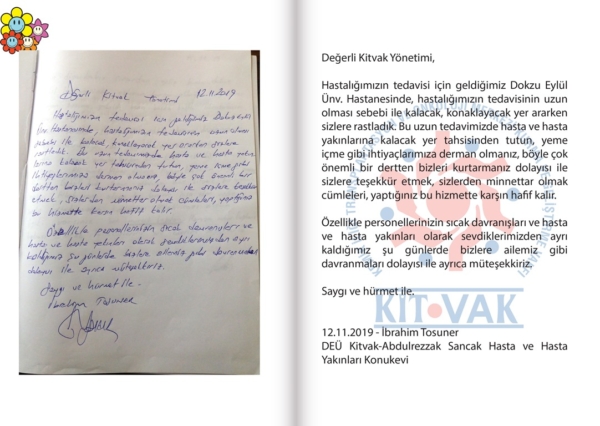 Değerli Kitvak Yönetimi
12.11.2019
Hastalığımızın tedavisi için geldiğimiz Dokuz Eylül
Ünv. Hastanesinde, hastalığımızın tedavisinin uzun olması
sebebi ile kalacak, konaklayacak yer ararken sizlere
rastladık. Bu uzun tedavimizde hasta ve hasta yakın
larına kalacak yer tahsisinden tutun, yeme içme gibi
ihtiyaçlarımıza derman olmanız, böyle çok önemli bir
dertten bizleri kurtarmanız dolayısı ile sizlere teşekkür
etmek, sizlerden minnettar olmak cümleleri, yaptığınız
bu hizmette karşın hafif kalır.
Özellikle personellerinizin sıcak davranışları ve
hasta ve hasta yakınları olarak sevdiklerimizden ayrı
kaldığımız şu günlerde bizlere ailemiz gibi davranmaları
dolayısı ile ayrıca müteşekkiriz.
Saygı ve hürmet ile.
İbrahim Tosuner
Değerli Kitvak Yönetimi,
Hastalığımızın tedavisi için geldiğimiz Dokzu Eylül
Ünv. Hastanesinde, hastalığımızın tedavisinin uzun
olması sebebi ile kalacak, konaklayacak yer ararken
sizlere rastladık. Bu uzun tedavimizde hasta ve hasta
yakınlarına kalacak yer tahsisinden tutun, yeme
içme gibi ihtiyaçlarımıza derman olmanız, böyle çok
önemli bir dertten bizleri kurtarmanız dolayısı ile
sizlere teşekkür etmek, sizlerden minnettar olmak
cümleleri, yaptığınız bu hizmette karşın hafif kalır.
Özellikle personellerinizin sıcak davranışları ve hasta
ve hasta yakınları olarak sevdiklerimizden ayrı
kaldığımız şu günlerde bizlere ailemiz gibi
davranmaları dolayısı ile ayrıca müteşekkiriz.
Saygı ve hürmet ile.
KİT VAK
12.11.2019 - İbrahim Tosuner
DEÜ Kitvak-Abdulrezzak Sancak Hasta ve Hasta
Yakınları Konukevi